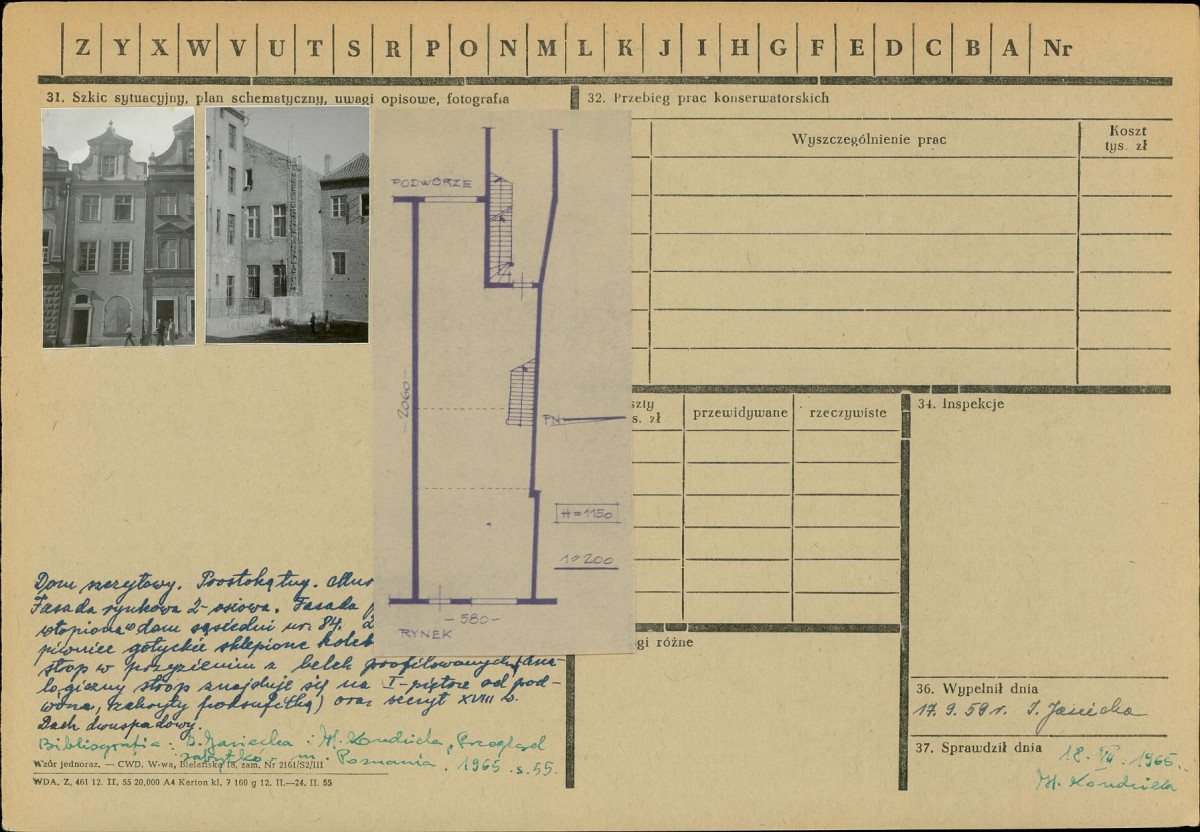 Z Y X W V U T S R P O N M L K J I H G F E D C B A Nr
31. Szkic sytuacyjny, plan schematyczny, uwagi opisowe, fotografia
32. Przebieg prac konserwatorskich
Wyszczególnienie prac
Koszt
tys. zł
PODWÓRZE
-2060-
PN
H=1150
1:200
-580-
RYNEK
szty
s. zł
przewidywane
rzeczywiste
34. Inspekcje
gi różne
Dom szczytowy. Prostokątny.
Fasada rynkowa 2-osiowa. Fasada
wtopiona w dom sąsiedni nr. 84.
piwnice gotyckie sklepione koleb
strop w przyziemiu z belek profilowanych (ana-
logiczny strop znajduje się na I-piętrze od pod-
wórza, zakryty podsufitką) oraz szczyt XVIII w.
Dach dwuspadowy.
Bibliografia: I. Jasiecka i H. Kondziela, Przegląd
zabytków m. Poznania, 1965 s. 55.
Wzór jednoraz. — CWD, W-wa, Bielańska 18, zam. Nr 2161/S2/III
WDA. Z. 461 12. II. 55 20,000 A4 Karton kl. 7 160 g 12. II.—24. II. 55
36. Wypełnił dnia
17. 9. 59 r.
37. Sprawdził dnia
18. VII. 1965.
H. Kondziela